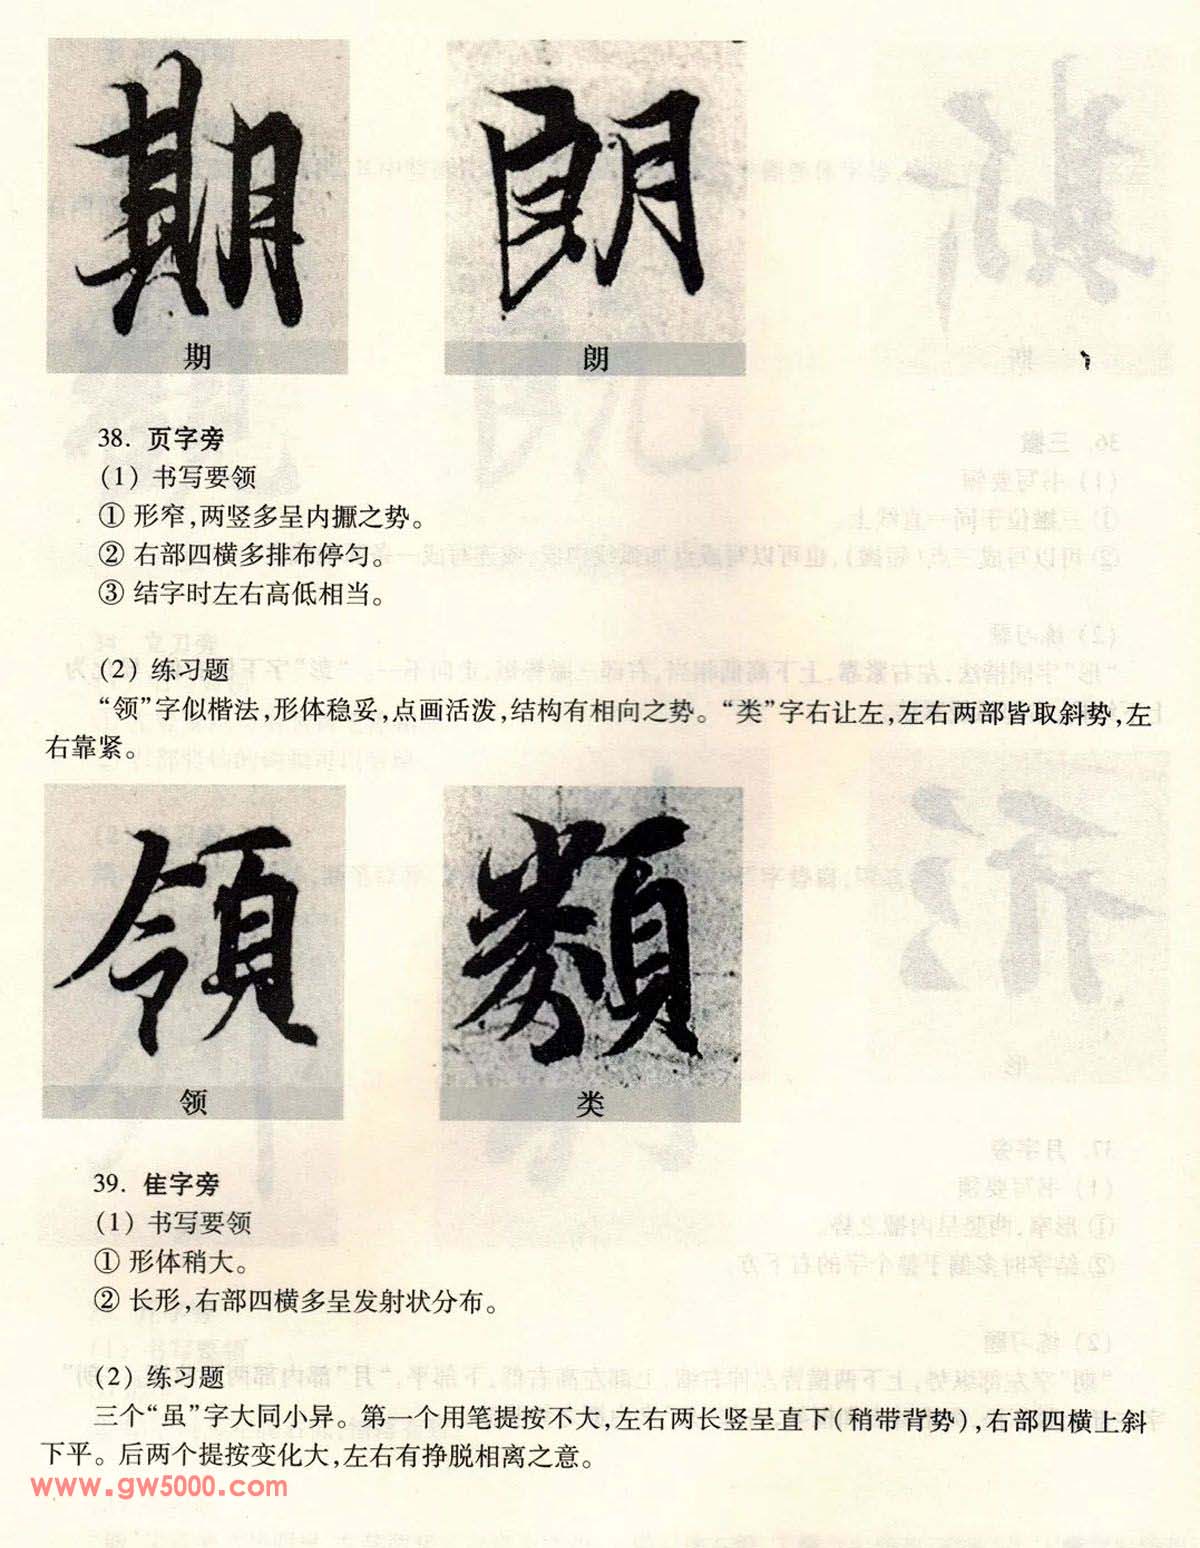 期 朗
期 朗
38. 页字旁
(1) 书写要领
① 形窄,两竖多呈内擫之势。
② 右部四横多排布停匀。
③ 结字时左右高低相当。
(2) 练习题
“领”字似楷法,形体稳妥,点画活泼,结构有相向之势。“类”字右让左,左右两部皆取斜势,左
右靠紧。
領 類
领 类
39. 隹字旁
(1) 书写要领
① 形体稍大。
② 长形,右部四横多呈发射状分布。
(2) 练习题
三个“虽”字大同小异。第一个用笔提按不大,左右两长竖呈直下(稍带背势),右部四横上斜
下平。后两个提按变化大,左右有挣脱相离之意。
www.gw5000.com